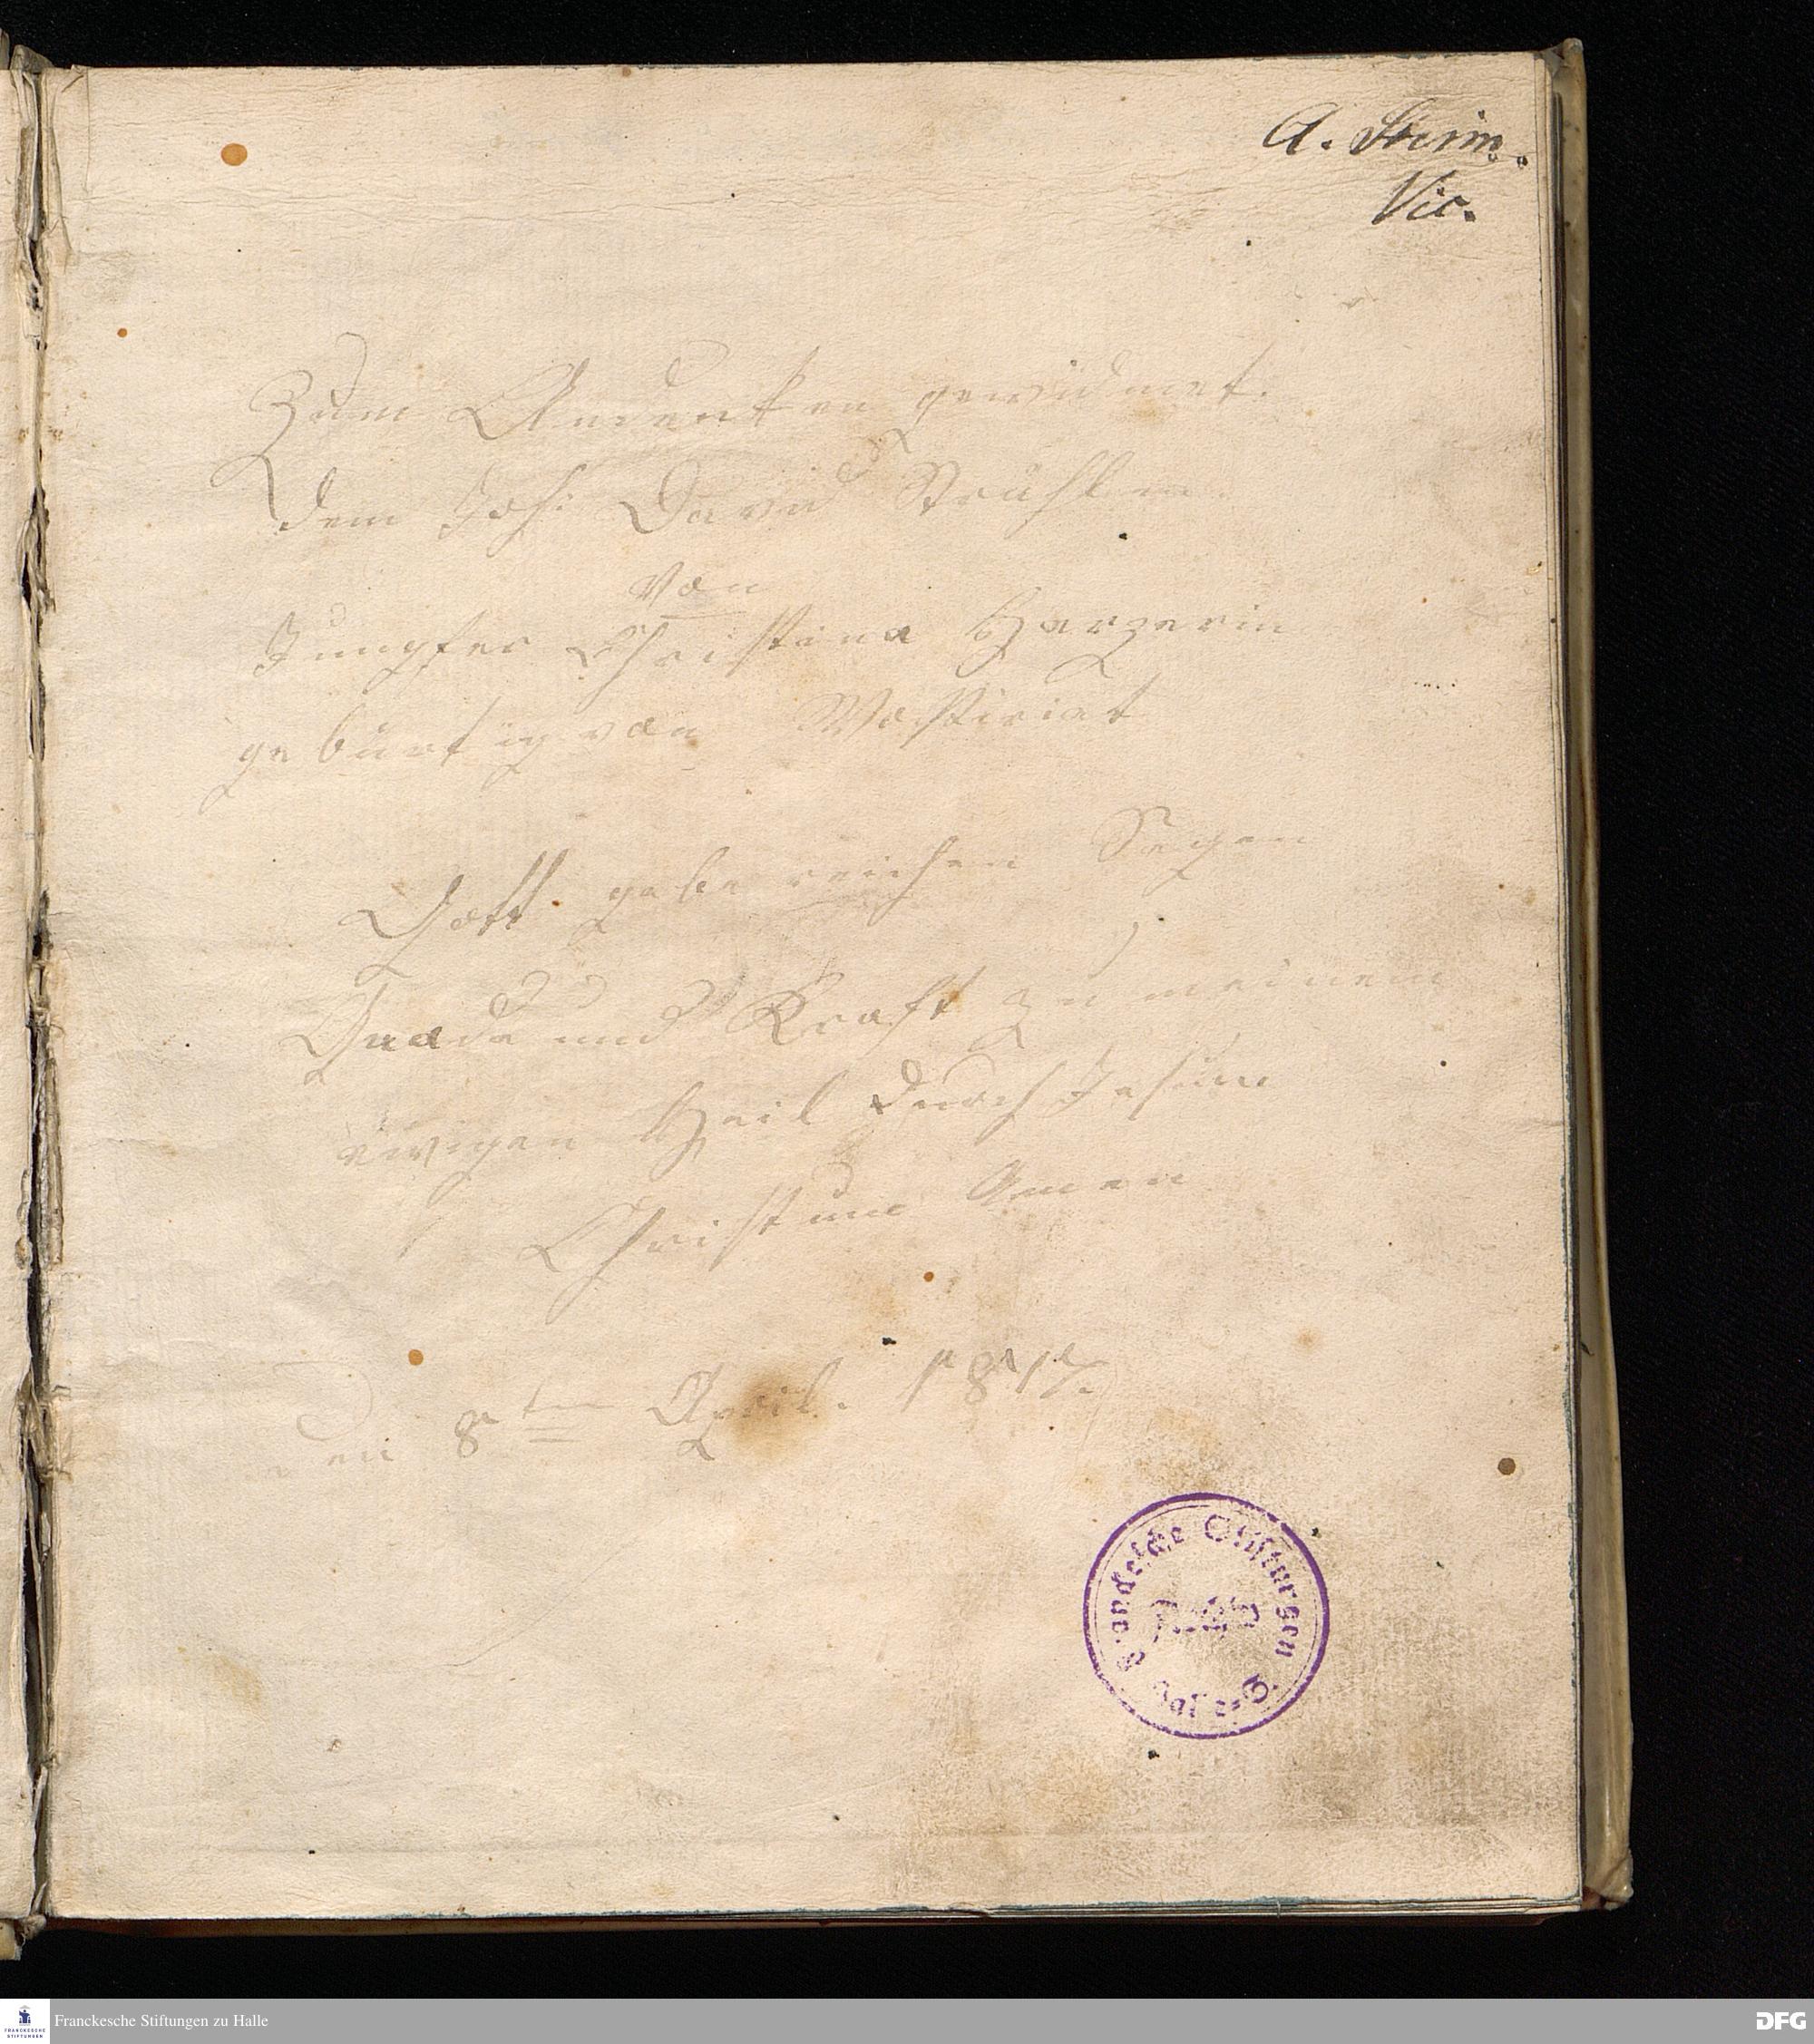 A. Stein.
Vic.
Zum Andenken gewidmet.
dem Joh: David
Von
Jungfer Christina Harzerin
gebürtig von
Gott gebe reichen Segen
Gnade und Kraft zu meinem
ewigen Heil durch Jesum
Christum Amen
den 8ten April. 1817.
Franckesche Stiftungen
Halle
Franckesche Stiftungen zu Halle
FRANCKESCHE
STIFTUNGEN
DFG